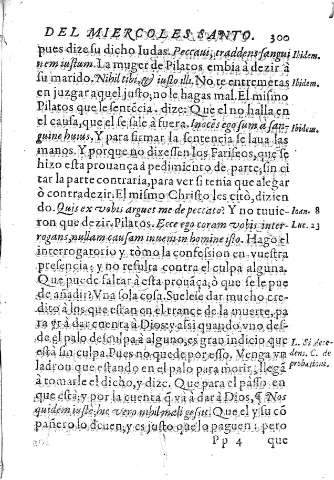 DEL MIERCOLES SANTO. 300
pues dize su dicho Iudas. Peccaui, traddens sangui Ibidem.
nem iustum. La muger de Pilatos embia à dezir à
su marido. Nihil tibi, & iusto illi. No te entremetas Ibidem.
en juzgar aquel justo, no le hagas mal. El mismo
Pilatos que le sentēcia. dize: Que el no halla en
el causa, que el se sale à fuera. Inocēs ego sum à san- Ibidem.
guine huius. Y para firmar la sentencia se laua las
manos. Y porque no dixessen los Fariseos, que se
hizo esta prouança à pedimiento de parte, sin ci
tar la parte contraria, para ver si tenia que alegar
ò contradezir. El mismo Christo les citò, dizien
do. Quis ex vobis arguet me de peccato? Y no tuuie- Ioan. 8
ron que dezir. Pilatos. Ecce ego coram vobis inter- Luc. 23
rogans, nullam causam inueni in homine isto. Hago el
interrogatorio y tomo la confession en vuestra
presencia; y no resulta contra el culpa alguna.
Que puede faltar à esta prouāça, ò que se le pue
de añadir? Vna sola cosa. Suelese dar mucho cre-
dito à los que estan en el trance de la muerte, pa
ra yr à dar cuenta à Dios, y assi quando vno des-
de el palo desculpa à alguno, es gran indicio que
està sin culpa. Pues no quede por esso. Venga vn
ladron que estando en el palo para morir, llegā
à tomarle el dicho, y dize. Que para el passo en
que està; y por la cuenta q̄ va à dar à Dios, Nos
quidem iustè, hic vero nihil mali gessit. Que el y su cō
pañero lo deuen, y es justo que lo paguen; pero
Pp 4 que